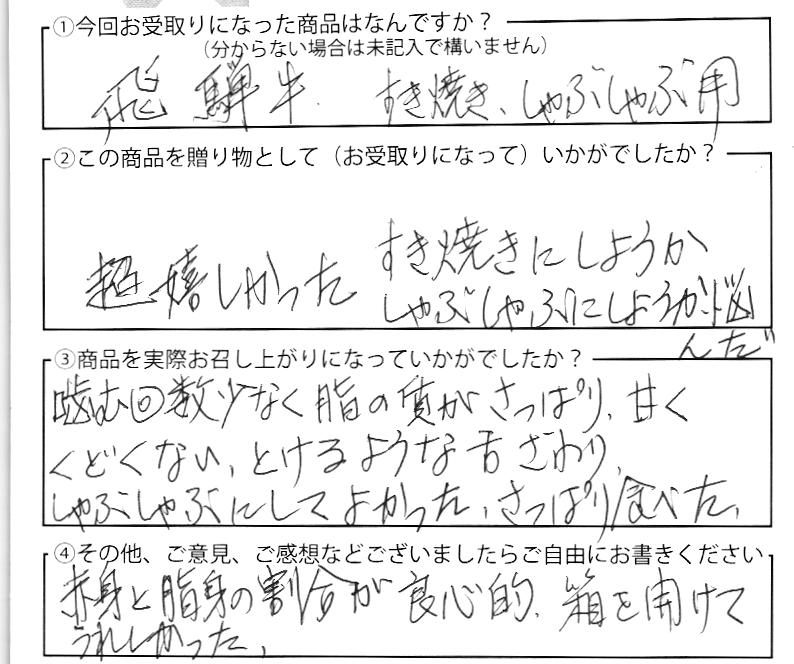 ①今回お受取りになった商品はなんですか？
（分からない場合は未記入で構いません）
飛騨牛 すき焼き、しゃぶしゃぶ用
②この商品を贈り物として（お受取りになって）いかがでしたか？
超嬉しかった すき焼きにしようか
しゃぶしゃぶにしようか悩
んだ
③商品を実際お召し上がりになっていかがでしたか？
噛む回数少なく脂の質がさっぱり、甘く
くどくない、とけるような舌ざわり、
しゃぶしゃぶにしてよかった、さっぱり食べた、
④その他、ご意見、ご感想などございましたらご自由にお書きください
赤身と脂身の割合が良心的、箱を開けて
うれしかった、